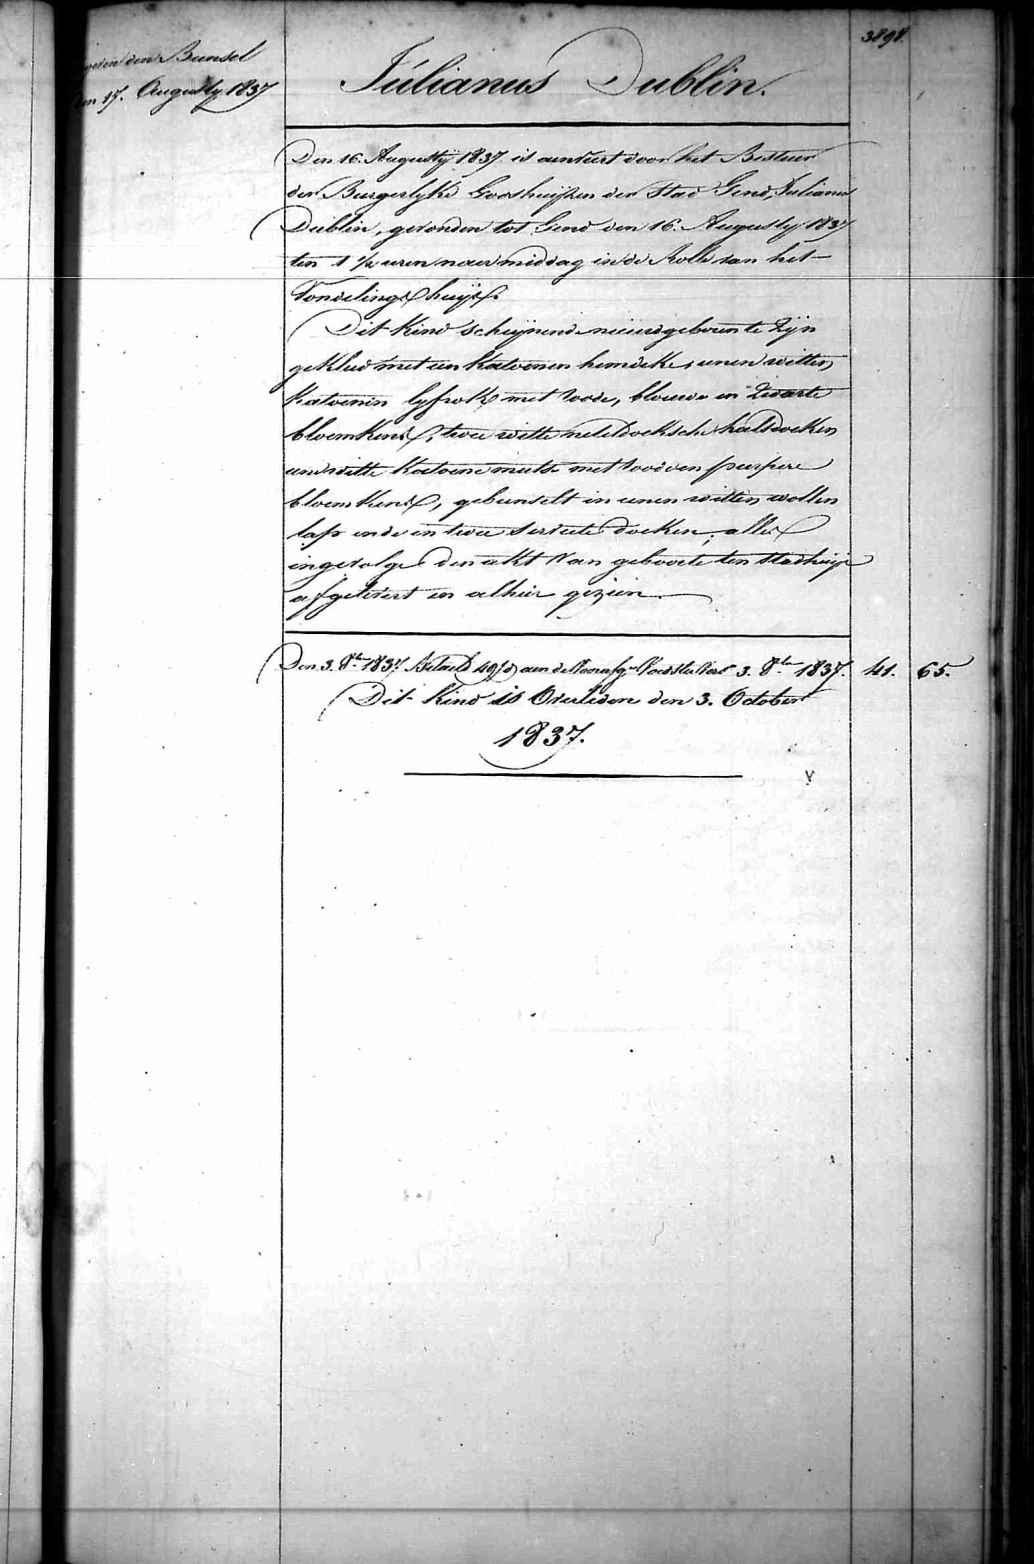 3898.
den Bunsel
den 17. Augusty 1837
Júlianus Dublin.
Den 16. Augusty 1837 is aenveirt door het Bestuer
der Burgerlyke Godshuijzen der Stad Gend, Julianus
Dublin, gevonden tot Gend den 16. Augusty 1837
ten 1 ½ uren naer middag in de Rolle van het
Vondelings huijs.
Dit Kind schijnende nieuwdgeboren te zijn
gekleed met een Katoenen hemdeke, eenen witten
Katoenen lyfrok met roode, blouwe en zwarte
bloemkens, twee witte neteldoeksche halsdoeken
een witte Katoene mutse met roode en purpere
bloemkens, gebunselt in eenen witten wollen
laps ende in twee serviete doeken, alles
ingevolge den akt van geboorte ten Stadhuijze
afgelevert en alhier gezien.
Den 3. 8bre 1837 Betaeld 49/d aen de 3. 8bre 1837. 41. 65.
Dit Kind is Overleden den 3. October
1837.